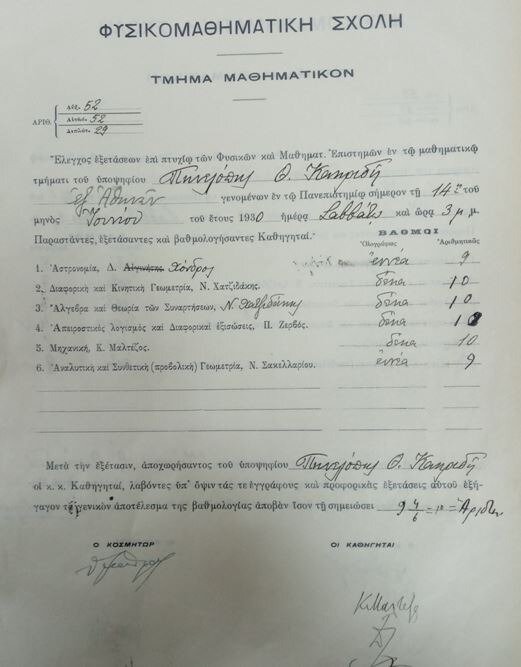 ΦΥΣΙΚΟΜΑΘΗΜΑΤΙΚΗ ΣΧΟΛΗ
ΤΜΗΜΑ ΜΑΘΗΜΑΤΙΚΟΝ
ΑΡΙΘ. 52
52
Διπλώμ. 29
Ἔλεγχος ἐξετάσεων ἐπὶ πτυχίῳ τῶν Φυσικῶν καὶ Μαθηματ. Ἐπιστημῶν ἐν τῷ μαθηματικῷ
τμήματι τοῦ ὑποψηφίου Πηνελόπης Θ.
ἐξ Ἀθηνῶν γενομένων ἐν τῷ Πανεπιστημίῳ σήμερον τῇ 14ῃ τοῦ
μηνὸς Ἰουνίου τοῦ ἔτους 1930 ἡμέρᾳ Σαββάτῳ καὶ ὥρᾳ 3 μ.μ.
Παραστάντες, ἐξετάσαντες καὶ βαθμολογήσαντες Καθηγηταί.
ΒΑΘΜΟΙ
Ὁλογράφως Ἀριθμητικῶς
1. Ἀστρονομία, Δ. Αἰγινήτης Χόνδρος ἐννέα 9
2. Διαφορικὴ καὶ Κινητικὴ Γεωμετρία, Ν. Χατζιδάκης. δέκα 10
3. Ἄλγεβρα καὶ Θεωρία τῶν Συναρτήσεων, Ν. Χατζιδάκης δέκα 10
4. Ἀπειροστικὸς λογισμὸς καὶ Διαφορικαὶ ἐξισώσεις, Π. Ζερβός. δέκα 10
5. Μηχανική, Κ. Μαλτέζος. δέκα 10
6. Ἀναλυτικὴ καὶ Συνθετικὴ (προβολικὴ) Γεωμετρία, Ν. Σακελλαρίου. ἐννέα 9
Μετὰ τὴν ἐξέτασιν, ἀποχωρήσαντος τοῦ ὑποψηφίου Πηνελόπης Θ.
οἱ κ. κ. Καθηγηταί, λαβόντες ὑπ' ὄψιν τάς τε ἐγγράφους καὶ προφορικὰς ἐξετάσεις αὐτοῦ ἐξή-
γαγον τὸ γενικὸν ἀποτέλεσμα τῆς βαθμολογίας ἀποβὰν ἴσον τῇ σημειώσει 9 4/6 = 10 = Ἄριστα
Ο ΚΟΣΜΗΤΩΡ ΟΙ ΚΑΘΗΓΗΤΑΙ